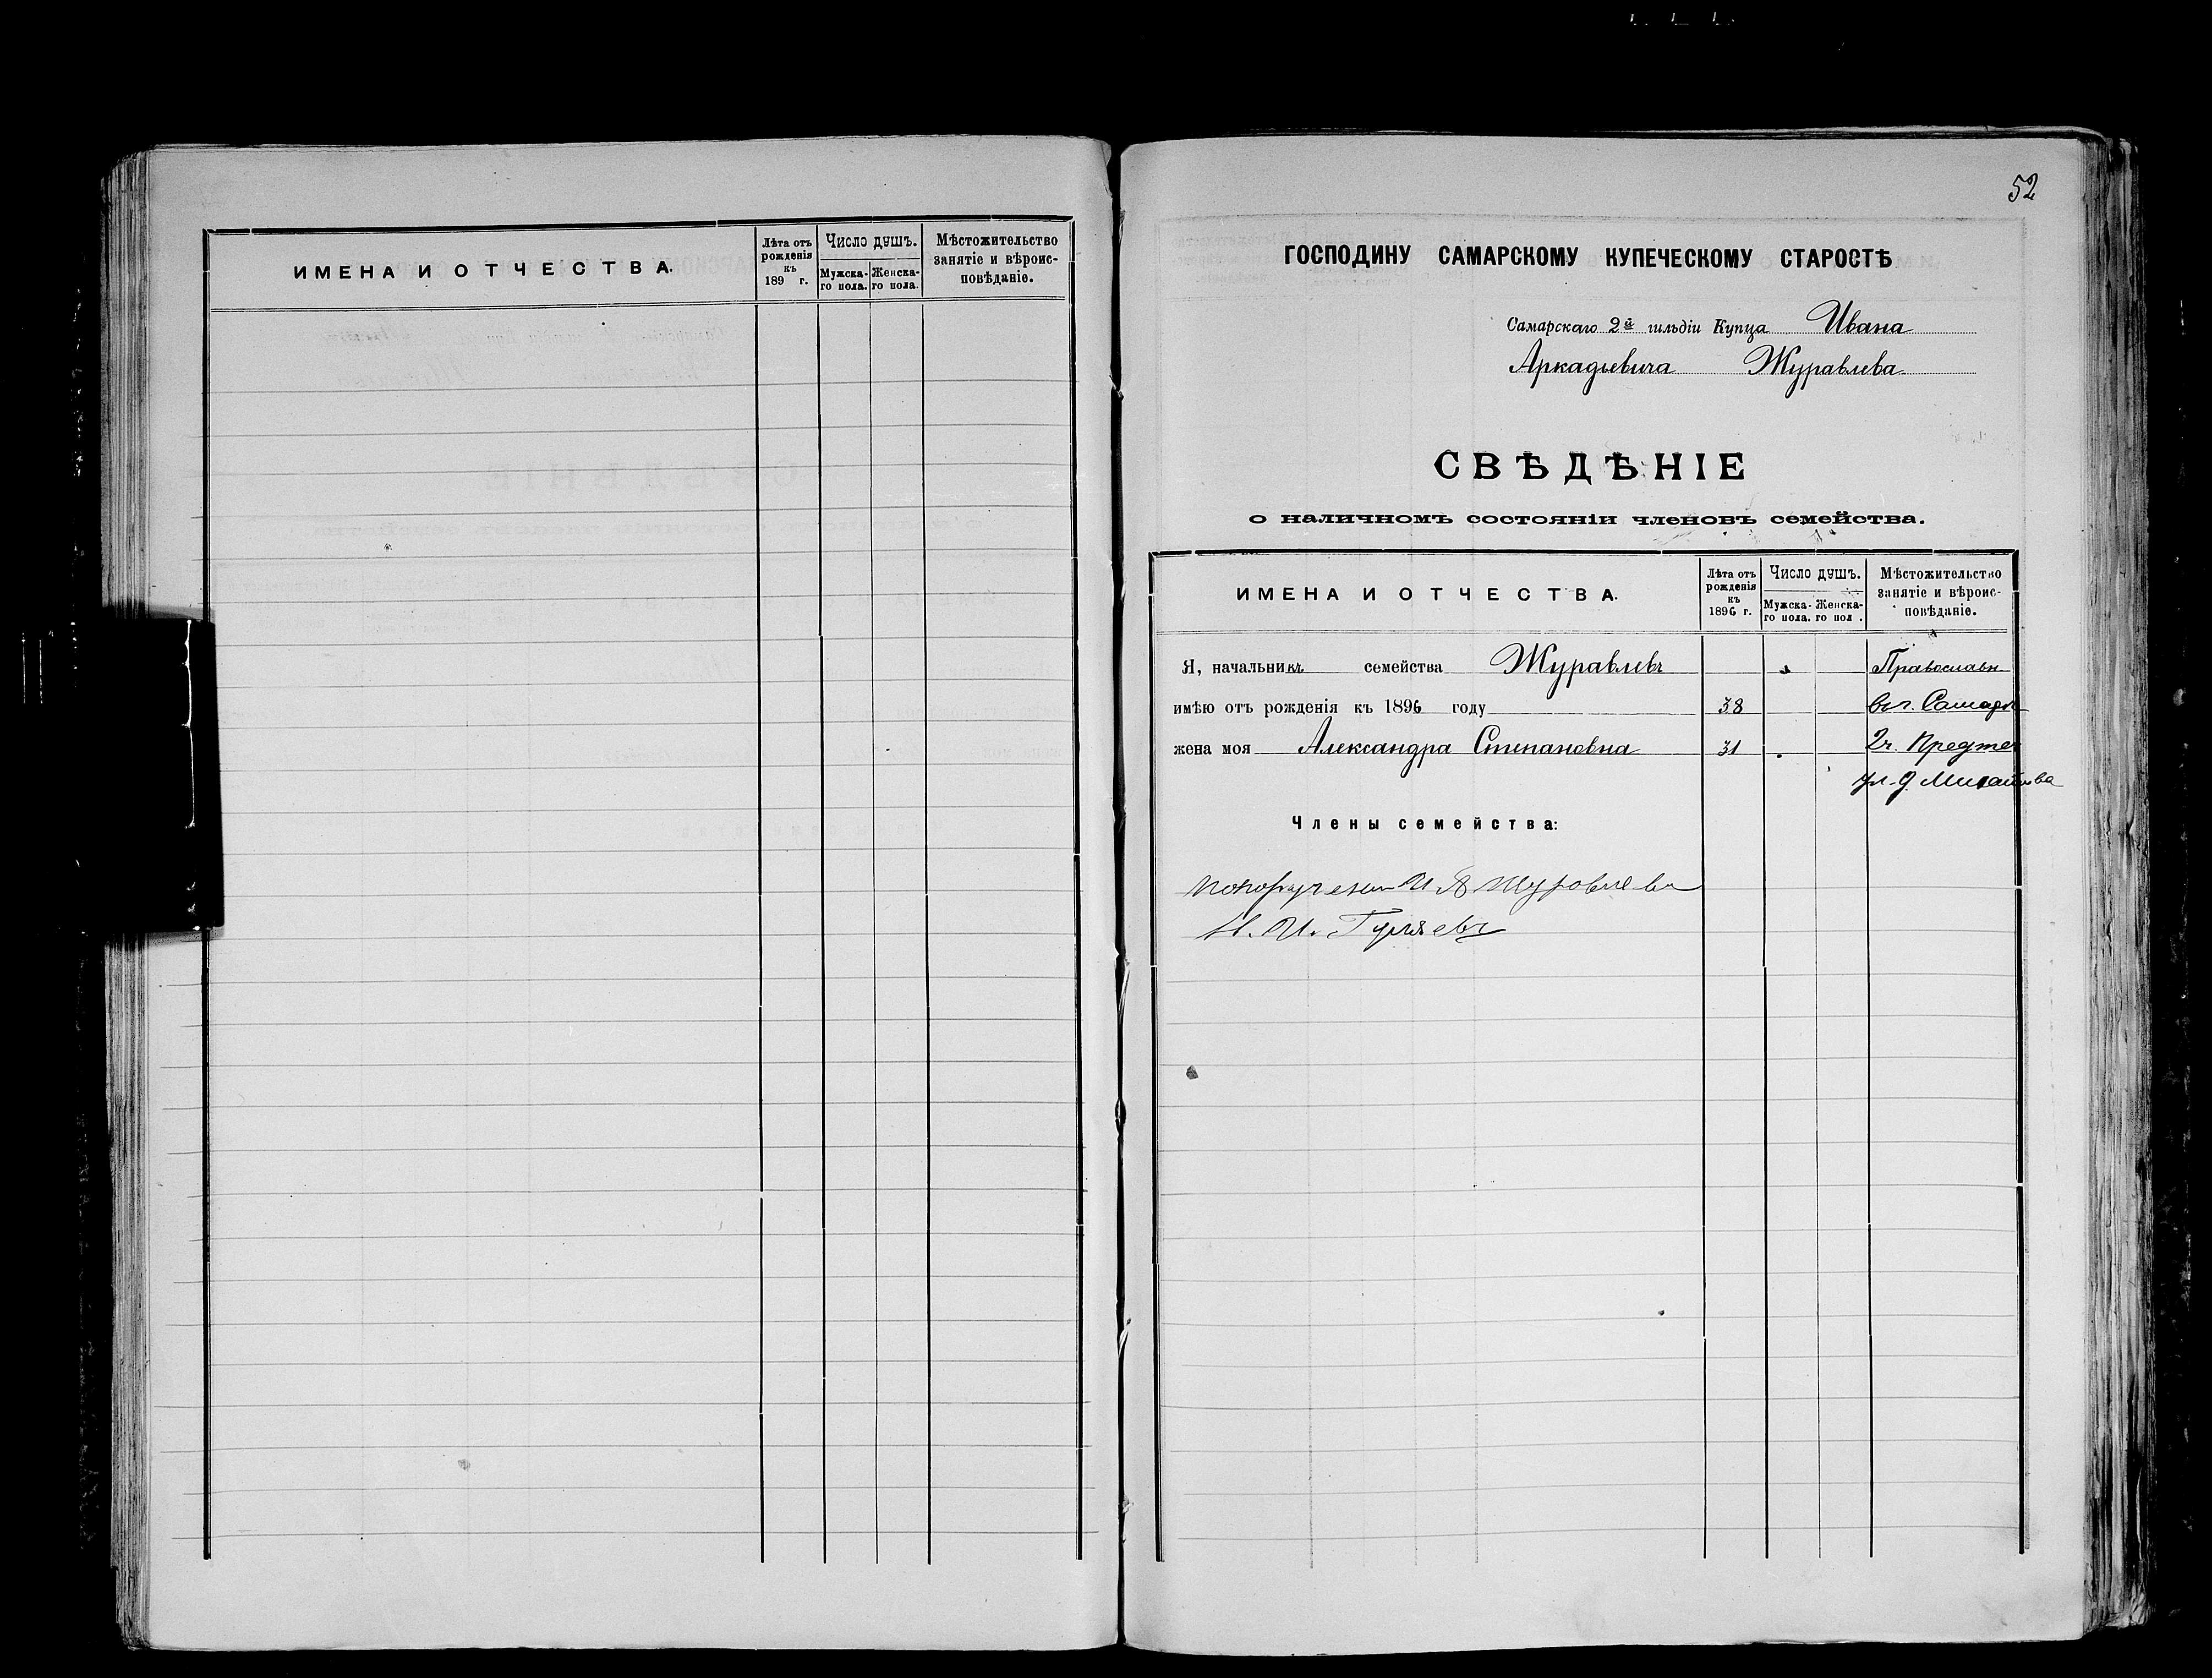 ИМЕНА И ОТЧЕСТВА.
Лѣта отъ рожденія къ 189 г.
Число душъ.
Мужска-го пола.
Женска-го пола.
Мѣстожительство занятіе и вѣроис-повѣданіе.
52
ГОСПОДИНУ САМАРСКОМУ КУПЕЧЕСКОМУ СТАРОСТѢ
Самарскаго 2й гильдіи Купца Ивана
Аркадьевича Журавлева
СВѢДѢНІЕ
о наличномъ состояніи членовъ семейства.
ИМЕНА И ОТЧЕСТВА.
Лѣта отъ рожденія къ 1896 г.
Число душъ.
Мужска-го пола.
Женска-го пол .
Мѣстожительство занятіе и вѣроис-повѣданіе.
Я, начальникъ семейства Журавлевъ Православн.
имѣю отъ рожденія къ 1896 году 38 въ г. Самарѣ
жена моя Александра Степановна 31 2ч. Предтеч
ул. д. Михайлова
Члены семейства:
И А Журовлева
Н. И. Гуляевъ